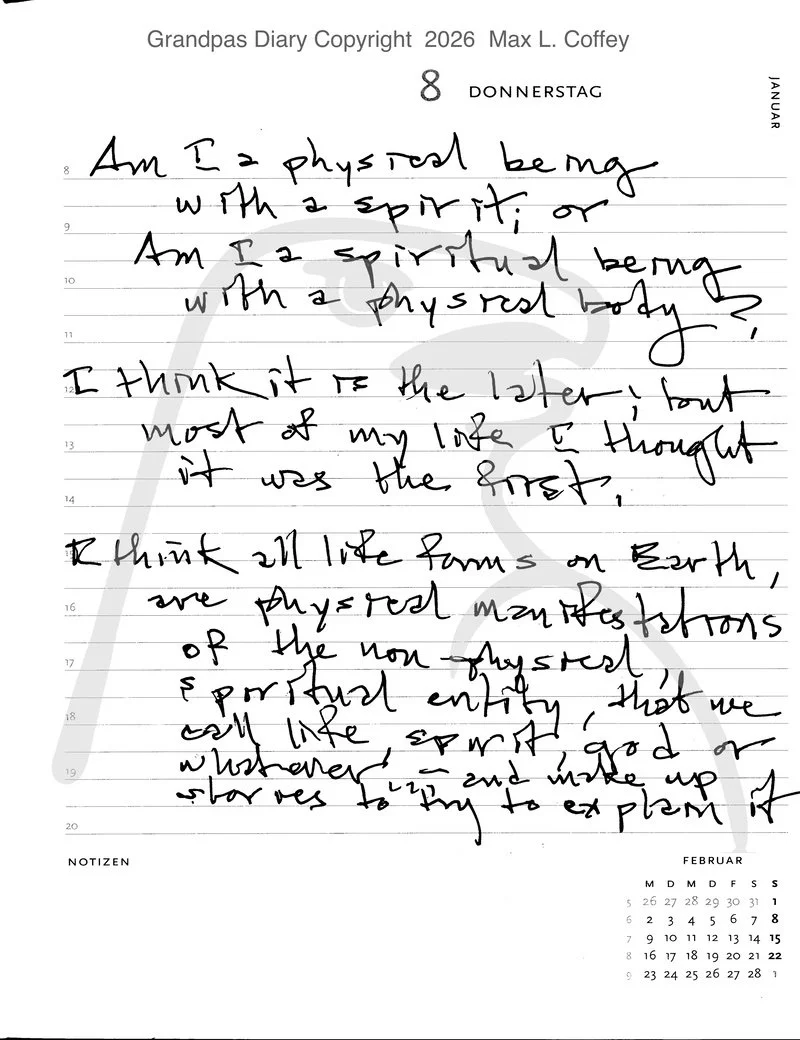 Grandpas Diary Copyright 2026 Max L. Coffey
8 DONNERSTAG
JANUAR
8 Am I a physical being
with a spirit; or
9
Am I a spiritual being
10
with a physical body?
11
I think it is the later; but
12
most of my life I thought
13
it was the first.
14
I think all life forms on Earth,
15
are physical manifestations
16
of the non-physical,
17
spiritual entity, that we
18
call life, spirit, god or
whatever, – and make up
19
stories to "try to explain it
20
NOTIZEN
FEBRUAR
M D M D F S S
5 26 27 28 29 30 31 1
6 2 3 4 5 6 7 8
7 9 10 11 12 13 14 15
8 16 17 18 19 20 21 22
9 23 24 25 26 27 28 1